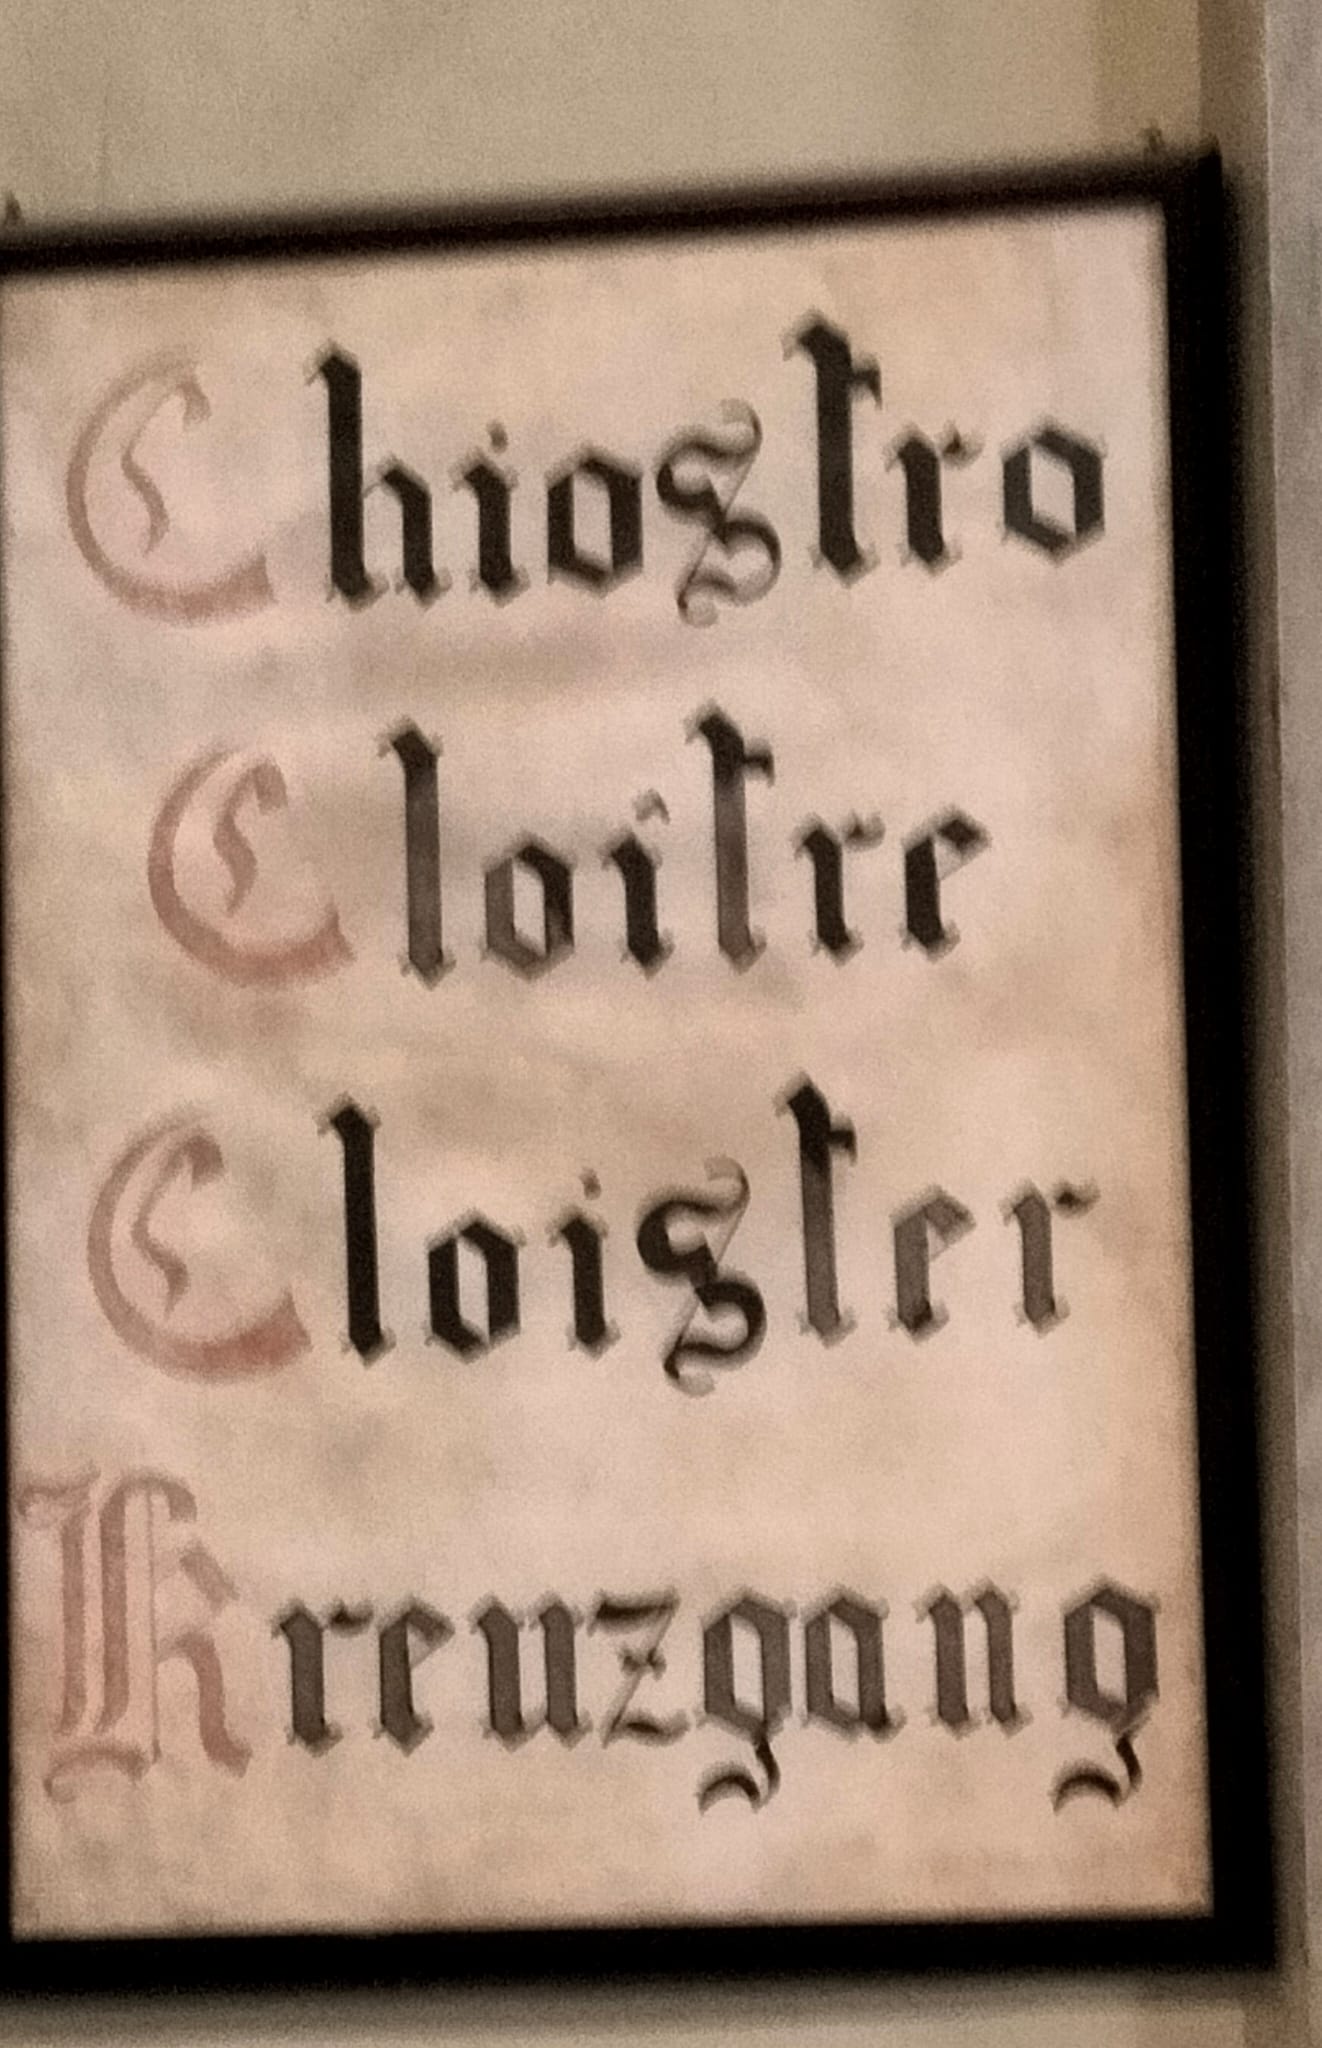 Chiostro
Cloître
Cloister
Kreuzgang